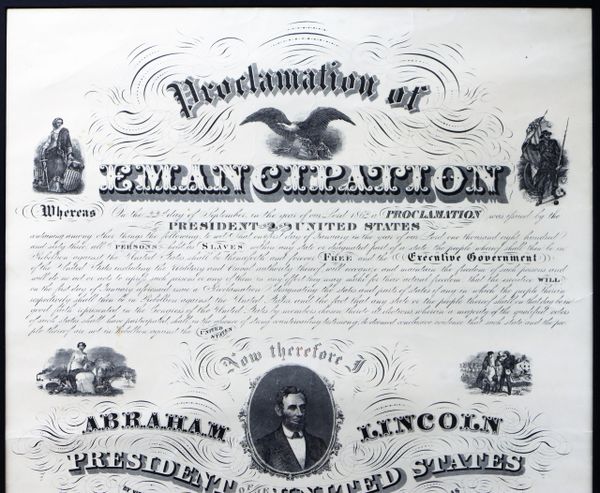 Proclamation of
EMANCIPATION
Whereas On the 22nd day of September, in the year of our Lord 1862 a PROCLAMATION was issued by the
PRESIDENT OF THE UNITED STATES
containing among other things the following
and sixty three all PERSONS held as SLAVES within any state or designated part of a state the people whereof shall then be in
Rebellion against the United States shall be thenceforth and forever FREE and the Executive Government
of the United States including the Military and Naval authority thereof will recognize and maintain the freedom of such persons and
will do no act or acts to repress such persons or any of them in any efforts they may make for their actual freedom that the executive WILL
on the first day of January aforesaid issue a Proclamation designating the states and parts of states if any in which the people therein
respectively shall then be in Rebellion against the United States and the fact that any state or the people thereof shall on that day be in
good faith represented in the Congress of the United States by members chosen thereto at elections wherein a majority of the qualified voters
of such states shall have participated shall in the absence of strong countervailing testimony be deemed conclusive evidence that such state and the peo-
ple thereof are not in rebellion against the UNITED STATES
Now therefore I
ABRAHAM LINCOLN
PRESIDENT OF THE UNITED STATES